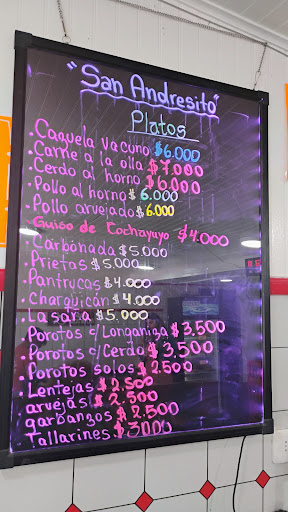 "San Andresito"
Platos
. Caquela vacuno $6.000
. Carne a la olla $7.000
. Cerdo al horno $6.000
. Pollo al horno $6.000
. Pollo arvejado $6.000
Guiso de Cochayuyo $4.000
. Carbonada $5.000
. Prietas $5.000
. Pantrucas $4.000
. Charquican $4.000
. Lasaña $5.000
. Porotos c/Longaniza $3.500
. Porotos c/Cerdo $3.500
. Porotos solos $2.500
. Lentejas $2.500
arvejas $2.500
garbanzos $2.500
Tallarines $3000